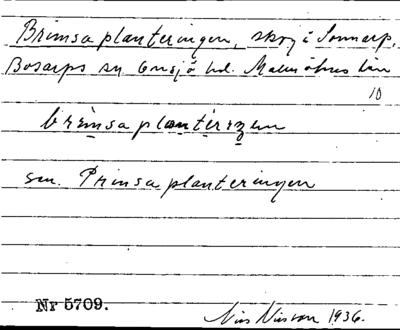 Brimsaplanteringen, skog i Sonnarp,
Bosarps sn Onsjö hd. Malmöhus län
10
brimsaplantering̱en
sm. Prinsaplanteringen
Nr 5709.
Nils Nilsson 1936.